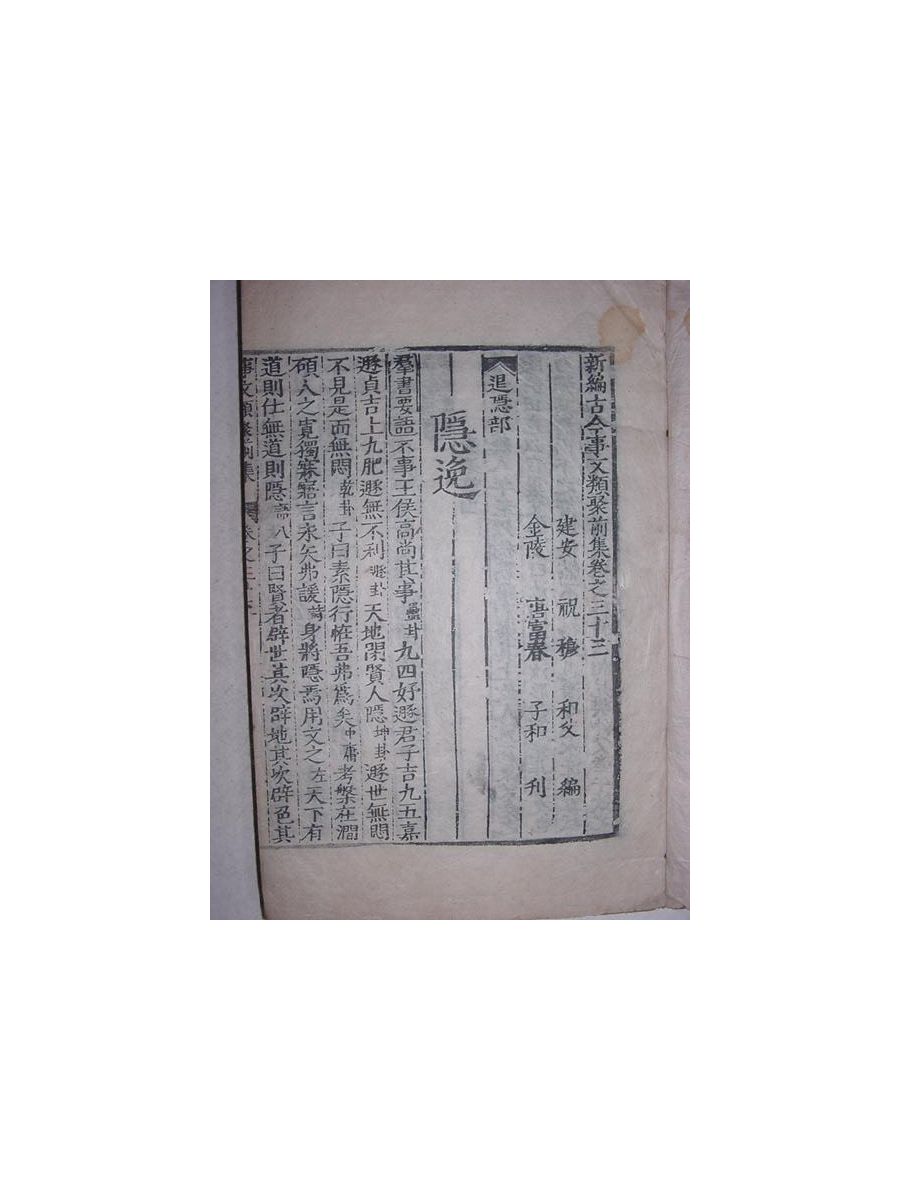 新編古今事文類聚前集卷之三十三
建安 祝穆 和父 編
金陵 唐富春 子和 刊
退隱部
隱逸
羣書要語不事王侯高尚其事蠱卦九四好遯君子吉九五嘉
遯貞吉上九肥遯無不利遯卦天地閉賢人隱坤卦遯世無悶
不見是而無悶乾卦子曰素隱行恠吾弗爲矣中庸考槃在澗
碩人之寬獨寐寤言永矢弗諼詩身將隱焉用文之左天下有
道則仕無道則隱語八子曰賢者辟世其次辟地其次辟色其
事文類聚前集